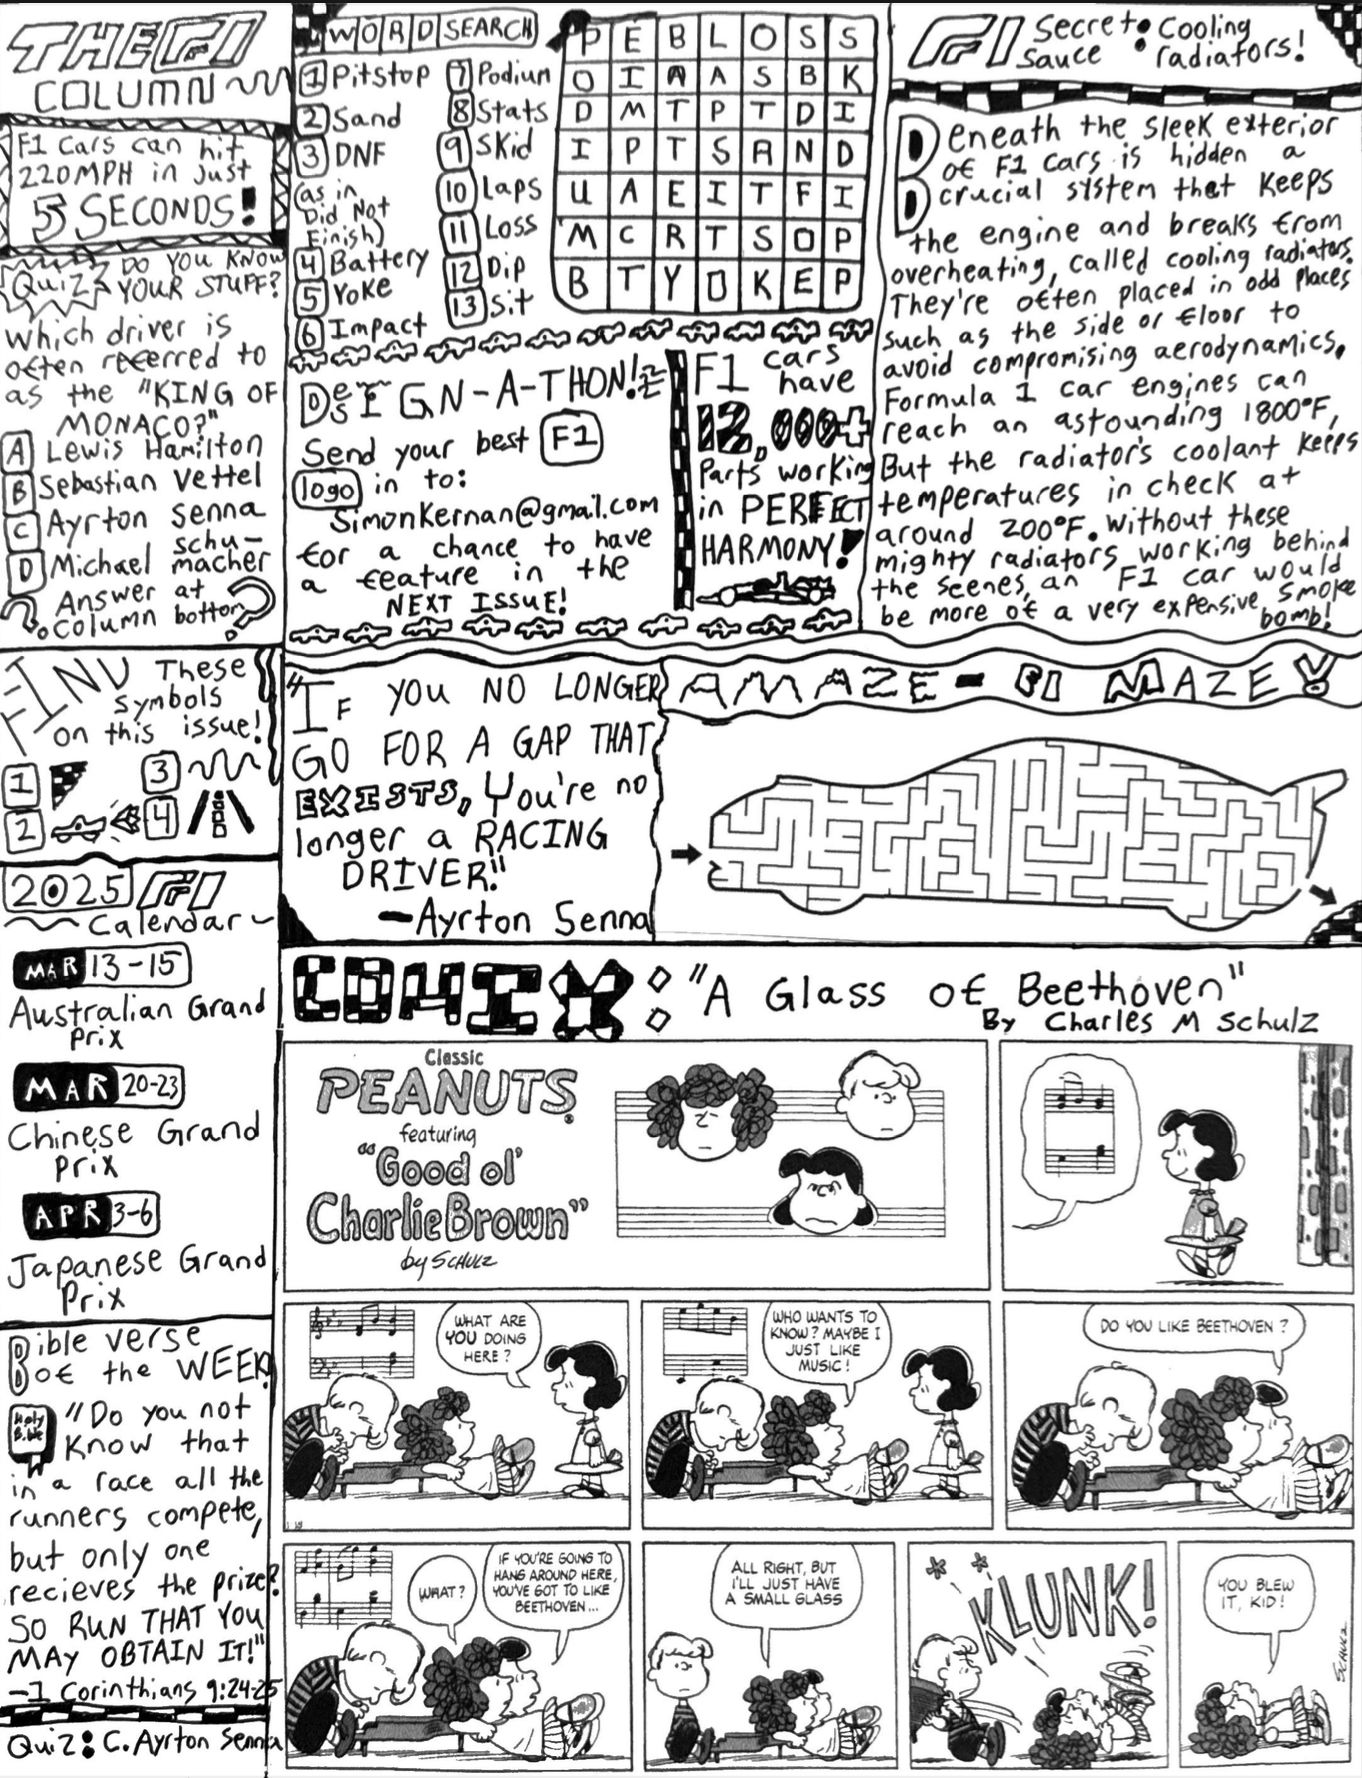 THE F1
COLUMN
F1 Cars can hit
220MPH in just
5 SECONDS!
QuiZ: DO YOU KNOW
YOUR STUFF?
Which driver is
often referred to
as the "KING OF
MONACO?"
A Lewis Hamilton
B Sebastian Vettel
C Ayrton Senna
D Michael Schu-
macher
Answer at
column bottom
FIND These
Symbols
on this issue!
1
3
2
4
2025 F1
Calendar
MAR 13-15
Australian Grand
Prix
MAR 20-23
Chinese Grand
Prix
APR 3-6
Japanese Grand
Prix
Bible verse
of the WEEK
Holy
Bible
"Do you not
Know that
in a race all the
runners compete,
but only one
recieves the prize?
SO RUN THAT YOU
MAY OBTAIN IT!"
-1 Corinthians 9:24-25
QuiZ: C. Ayrton Senna
WORD SEARCH
1 Pitstop
2 Sand
3 DNF
(as in
Did Not
Finish)
4 Battery
5 Yoke
6 Impact
7 Podium
8 Stats
9 Skid
10 Laps
11 Loss
12 Dip
13 Sit
P E B L O S S
O I A A S B K
D M T P T D I
I P T S A N D
U A E I T F I
M C R T S O P
B T Y O K E P
DESIGN-A-THON!
Send your best F1
logo in to:
SimonKernan@gmail.com
for a chance to have
a feature in the
NEXT ISSUE!
F1 cars
have
12,000+
Parts working
in PERFECT
HARMONY!
F1 Secret
Sauce: Cooling
radiators!
Beneath the sleek exterior
of F1 cars is hidden a
crucial system that keeps
the engine and breaks from
overheating, called cooling radiators.
They're often placed in odd places
such as the side or floor to
avoid compromising aerodynamics.
Formula 1 car engines can
reach an astounding 1800°F,
But the radiator's coolant keeps
temperatures in check at
around 200°F. Without these
mighty radiators working behind
the scenes, an F1 car would
be more of a very expensive smoke
bomb!
"IF YOU NO LONGER
GO FOR A GAP THAT
EXISTS, You're no
longer a RACING
DRIVER!"
-Ayrton Senna
AMAZE-F1 MAZE!
COMIX: "A Glass of Beethoven"
By Charles M Schulz
Classic
PEANUTS
featuring
"Good ol'
Charlie Brown"
by SCHULZ
WHAT ARE
YOU DOING
HERE?
WHO WANTS TO
KNOW? MAYBE I
JUST LIKE
MUSIC!
DO YOU LIKE BEETHOVEN?
WHAT?
IF YOU'RE GOING TO
HANG AROUND HERE,
YOU'VE GOT TO LIKE
BEETHOVEN...
ALL RIGHT, BUT
I'LL JUST HAVE
A SMALL GLASS
KLUNK!
YOU BLEW
IT, KID!
SCHULZ